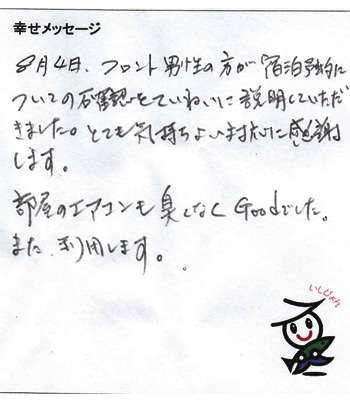 幸せメッセージ
8月4日、フロント男性の方が宿泊予約に
ついての確認をていねいに説明していただ
きました。とても気持ちよい対応に感謝
します。
部屋のエアコンも臭くなくGoodでした。
また利用します。
いしぴょん